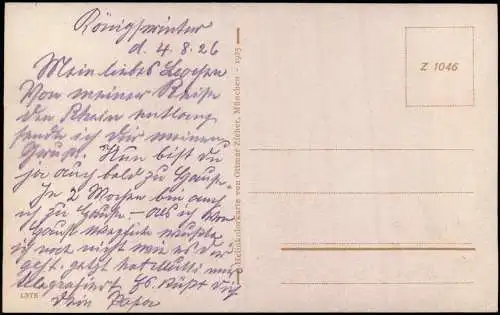 Königswinter
d. 4.8.26
Mein liebes
Von meiner Reise
den Rhein entlang
sende ich Dir meinen
Gruß. Nun bist Du
ja auch bald zu Hause.
In 2 Wochen bin auch
ich zu Hause – als ich von
Haus wegfuhr wußte
ich noch nicht wie es Dir
geht. Jetzt hat Mutti mir
telegrafiert. Es küßt Dich
Dein Papa
Heimatbilderkarte von Ottmar Zieher, München - 1925
Z 1046